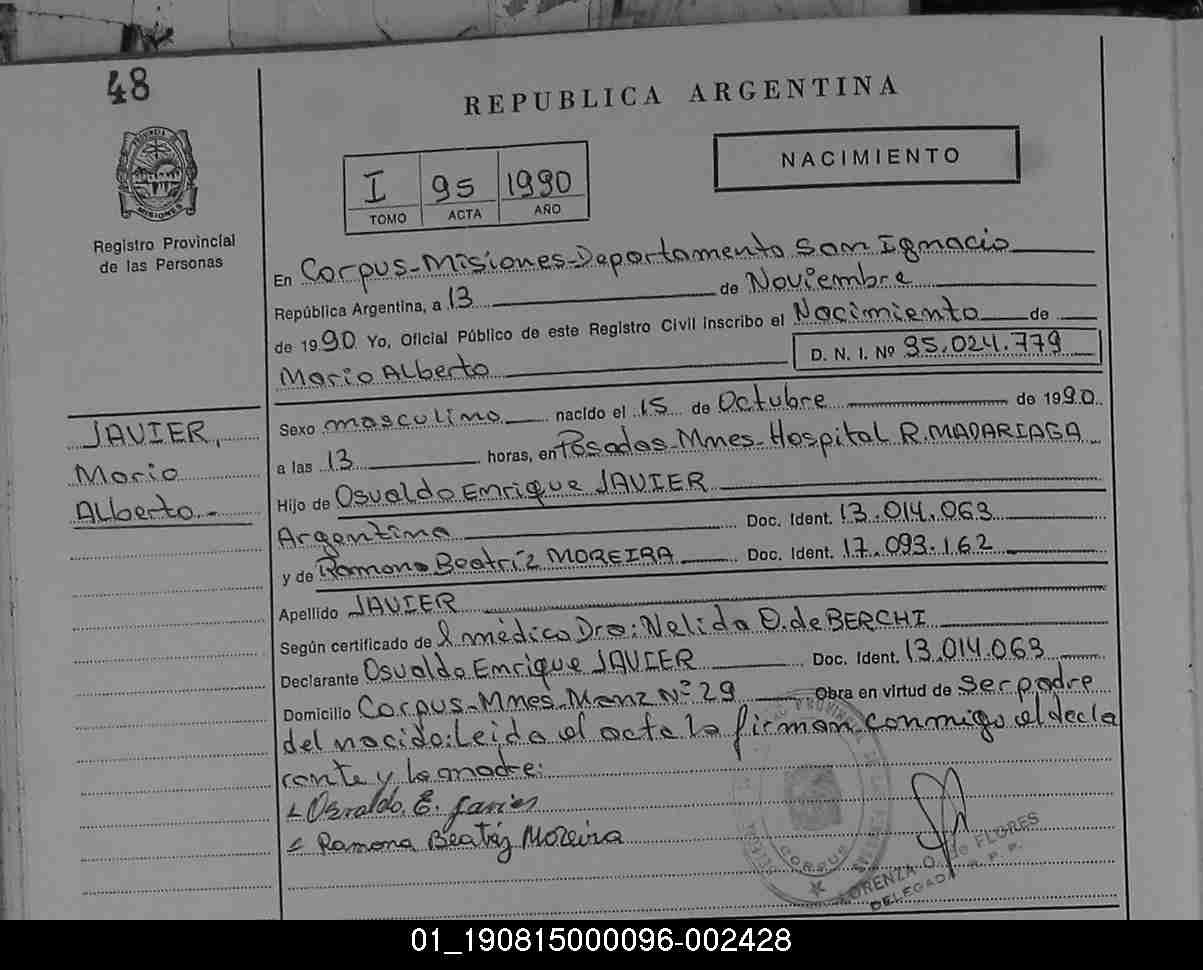 48
REPUBLICA ARGENTINA
PROVINCIA
MISIONES
Registro Provincial
de las Personas
I 95 1990
TOMO ACTA AÑO
NACIMIENTO
En Corpus-Misiones-Departamento San Ignacio
República Argentina, a 13 de Noviembre
de 1990 Yo, Oficial Público de este Registro Civil inscribo el Nacimiento de
Mario Alberto D. N. I. Nº 35.024.779
JAVIER,
Mario
Alberto.-
Sexo masculino nacido el 15 de Octubre de 1990
a las 13 horas, en Posadas Mnes-Hospital R. MADARIAGA
Hijo de Osvaldo Enrique JAVIER
Argentina Doc. Ident. 13.014.063
y de Ramona Beatríz MOREIRA Doc. Ident. 17.093.162
Apellido JAVIER
Según certificado de l médico Dra: Nelida O. de BERCHI
Declarante Osvaldo Enrique JAVIER Doc. Ident. 13.014.063
Domicilio Corpus-Mnes-Manz Nº 29 Obra en virtud de ser padre
del nacido: Leida el acta la firman conmigo el decla
rante y la madre:
Osvaldo. E. Javier
Ramona Beatriz Moreira
CORPUS
LORENZA O. de FLORES
DELEGADA R. P. P.
01_190815000096-002428